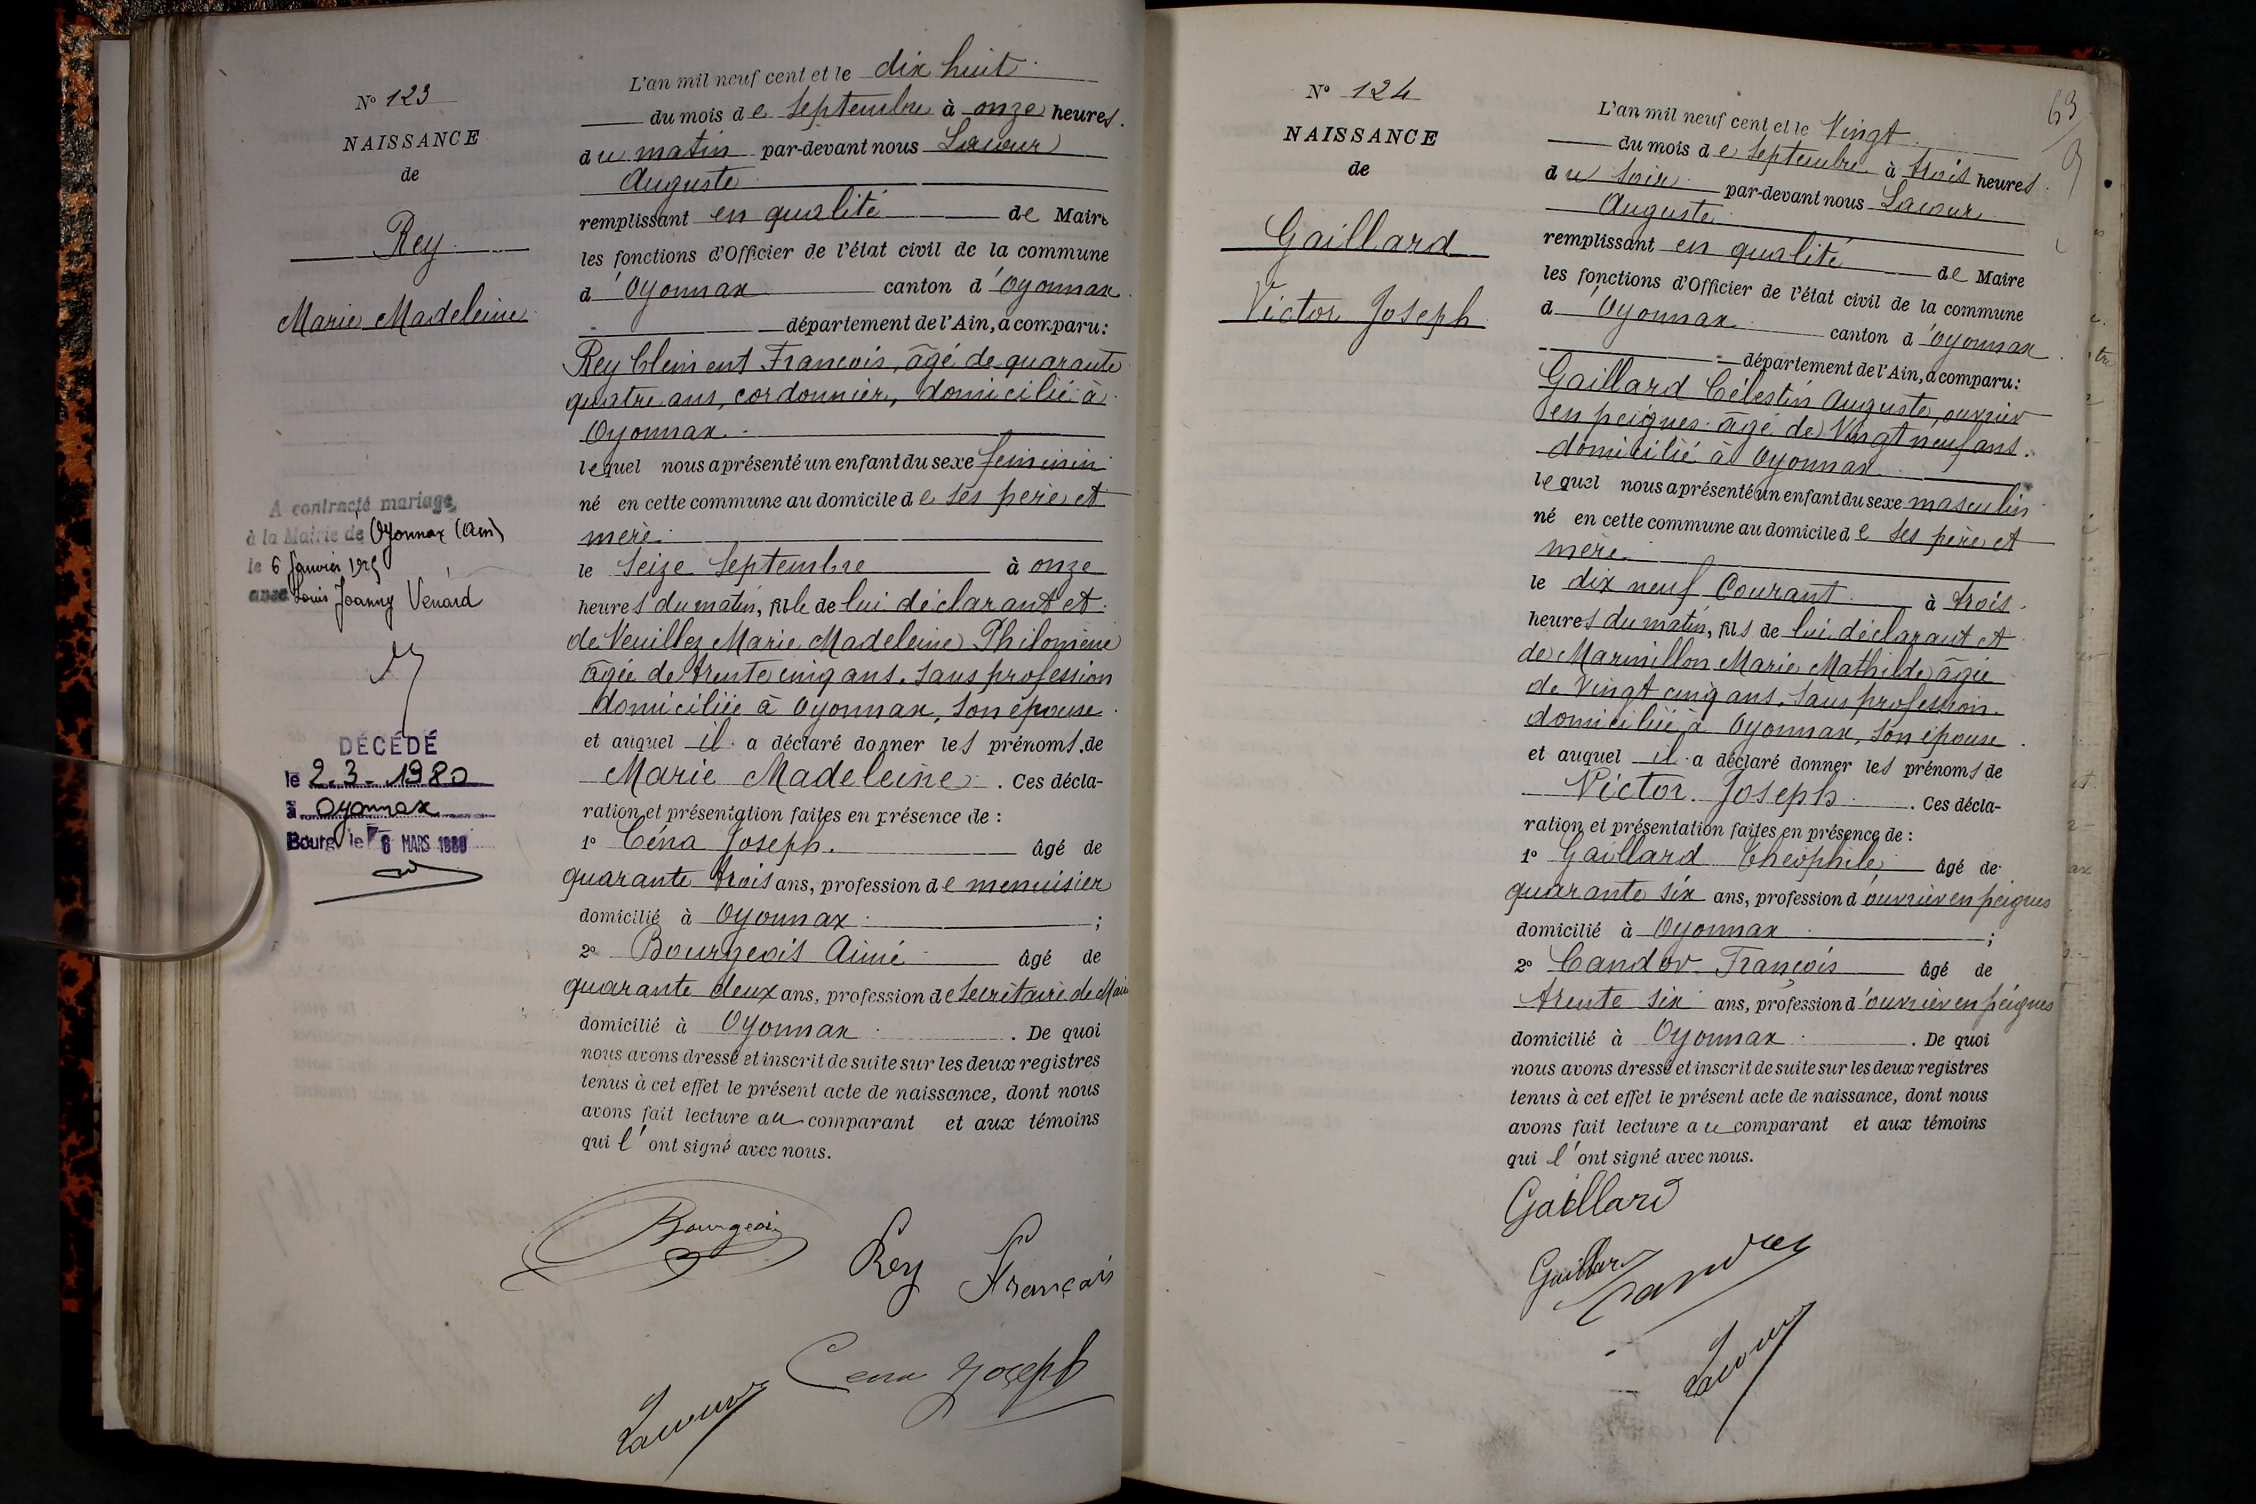 N° 123
NAISSANCE
de
Rey
Marie Madeleine
A contracté mariage
à la Mairie de Oyonnax (Ain)
le 6 Janvier 1925
avec Louis Joanny Venard
DÉCÉDÉ
le 2.3.1980
à Oyonnax
Bourg le 6 MARS 1980
L'an mil neuf cent et le dix huit
du mois de Septembre à onze heures.
du matin par-devant nous Lacour
Auguste
remplissant en qualité de Maire
les fonctions d'Officier de l'état civil de la commune
d'Oyonnax canton d'Oyonnax
département de l'Ain, a comparu:
Rey Clement Francois, âgé de quarante
quatre ans, cordonnier, domicilié à
Oyonnax.
lequel nous a présenté un enfant du sexe feminin
né en cette commune au domicile de ses père et
mère.
le Seize Septembre à onze
heures du matin, fille de lui déclarant et
de Veuillez Marie Madeleine Philomène
âgée de trente cinq ans, sans profession
domiciliée à Oyonnax, son épouse.
et auquel il a déclaré donner les prénoms de
Marie Madeleine. Ces décla-
ration et présentation faites en présence de :
1° Céna Joseph. âgé de
quarante trois ans, profession de menuisier
domicilié à Oyonnax ;
2° Bourgeois Aimé âgé de
quarante deux ans, profession de Secrétaire de Mairie
domicilié à Oyonnax . De quoi
nous avons dressé et inscrit de suite sur les deux registres
tenus à cet effet le présent acte de naissance, dont nous
avons fait lecture au comparant et aux témoins
qui l'ont signé avec nous.
Bourgeois
Rey Français
Cena Joseph
Lacour
63
N° 124
NAISSANCE
de
Gaillard
Victor Joseph
L'an mil neuf cent et le Vingt
du mois de Septembre à trois heures.
du soir par-devant nous Lacour
Auguste
remplissant en qualité de Maire
les fonctions d'Officier de l'état civil de la commune
d'Oyonnax canton d'Oyonnax
département de l'Ain, a comparu:
Gaillard Célestin Auguste, ouvrier
en peignes âgé de Vingt neuf ans.
domicilié à Oyonnax
lequel nous a présenté un enfant du sexe masculin
né en cette commune au domicile de ses père et
mère.
le dix neuf Courant à trois
heures du matin, fils de lui déclarant et
de Marmillon Marie Mathilde âgée
de Vingt cinq ans, sans profession.
domiciliée à Oyonnax, son épouse.
et auquel il a déclaré donner les prénoms de
Victor Joseph . Ces décla-
ration et présentation faites en présence de :
1° Gaillard Théophile âgé de
quarante six ans, profession d'ouvrier en peignes
domicilié à Oyonnax ;
2° Candov François âgé de
trente six ans, profession d'ouvrier en peignes
domicilié à Oyonnax . De quoi
nous avons dressé et inscrit de suite sur les deux registres
tenus à cet effet le présent acte de naissance, dont nous
avons fait lecture au comparant et aux témoins
qui l'ont signé avec nous.
Gaillard
Gaillard
Lacour